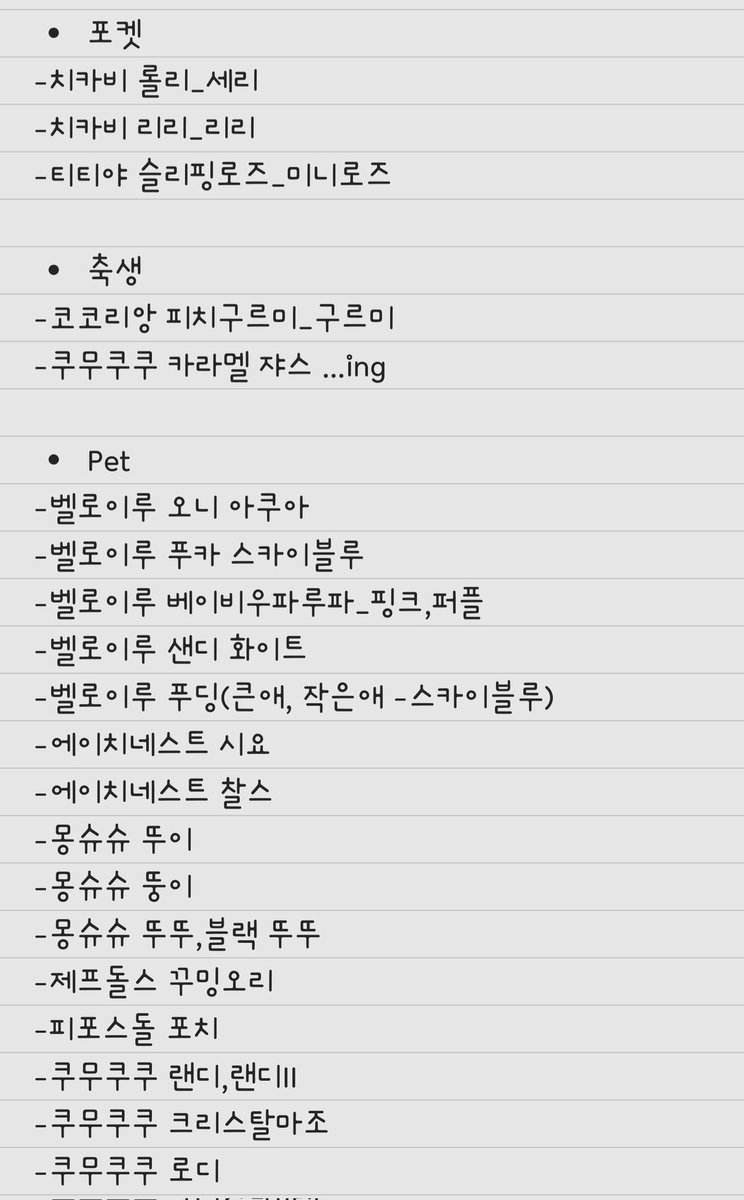 • 포켓
-치카비 롤리_세리
-치카비 리리_리리
-티티야 슬리핑로즈_미니로즈
• 축생
-코코리앙 피치구르미_구르미
-쿠무쿠쿠 카라멜 쟈스 ...ing
• Pet
-벨로이루 오니 아쿠아
-벨로이루 푸카 스카이블루
-벨로이루 베이비우파루파_핑크,퍼플
-벨로이루 샌디 화이트
-벨로이루 푸딩(큰애, 작은애 -스카이블루)
-에이치네스트 시요
-에이치네스트 찰스
-몽슈슈 뚜이
-몽슈슈 뚱이
-몽슈슈 뚜뚜,블랙 뚜뚜
-제프돌스 꾸밍오리
-피포스돌 포치
-쿠무쿠쿠 랜디,랜디II
-쿠무쿠쿠 크리스탈마조
-쿠무쿠쿠 로디